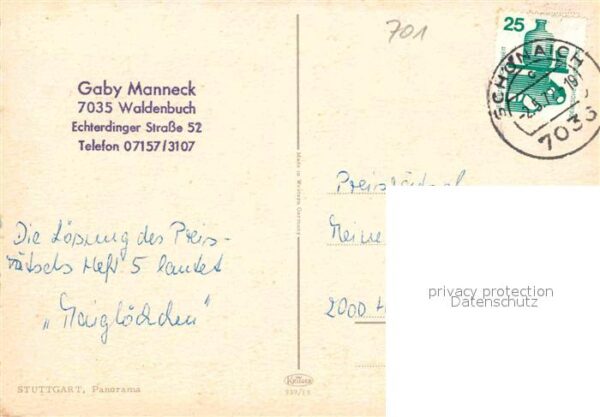 701
25
SCHÖNAICH
7033
Gaby Manneck
7035 Waldenbuch
Echterdinger Straße 52
Telefon 07157/3107
Made in Western Germany
Preisrätsel
Meine
2000
Die Lösung des Preis-
rätsels Heft 5 lautet
„Maiglöckchen"
privacy protection
Datenschutz
Krüger
STUTTGART, Panorama